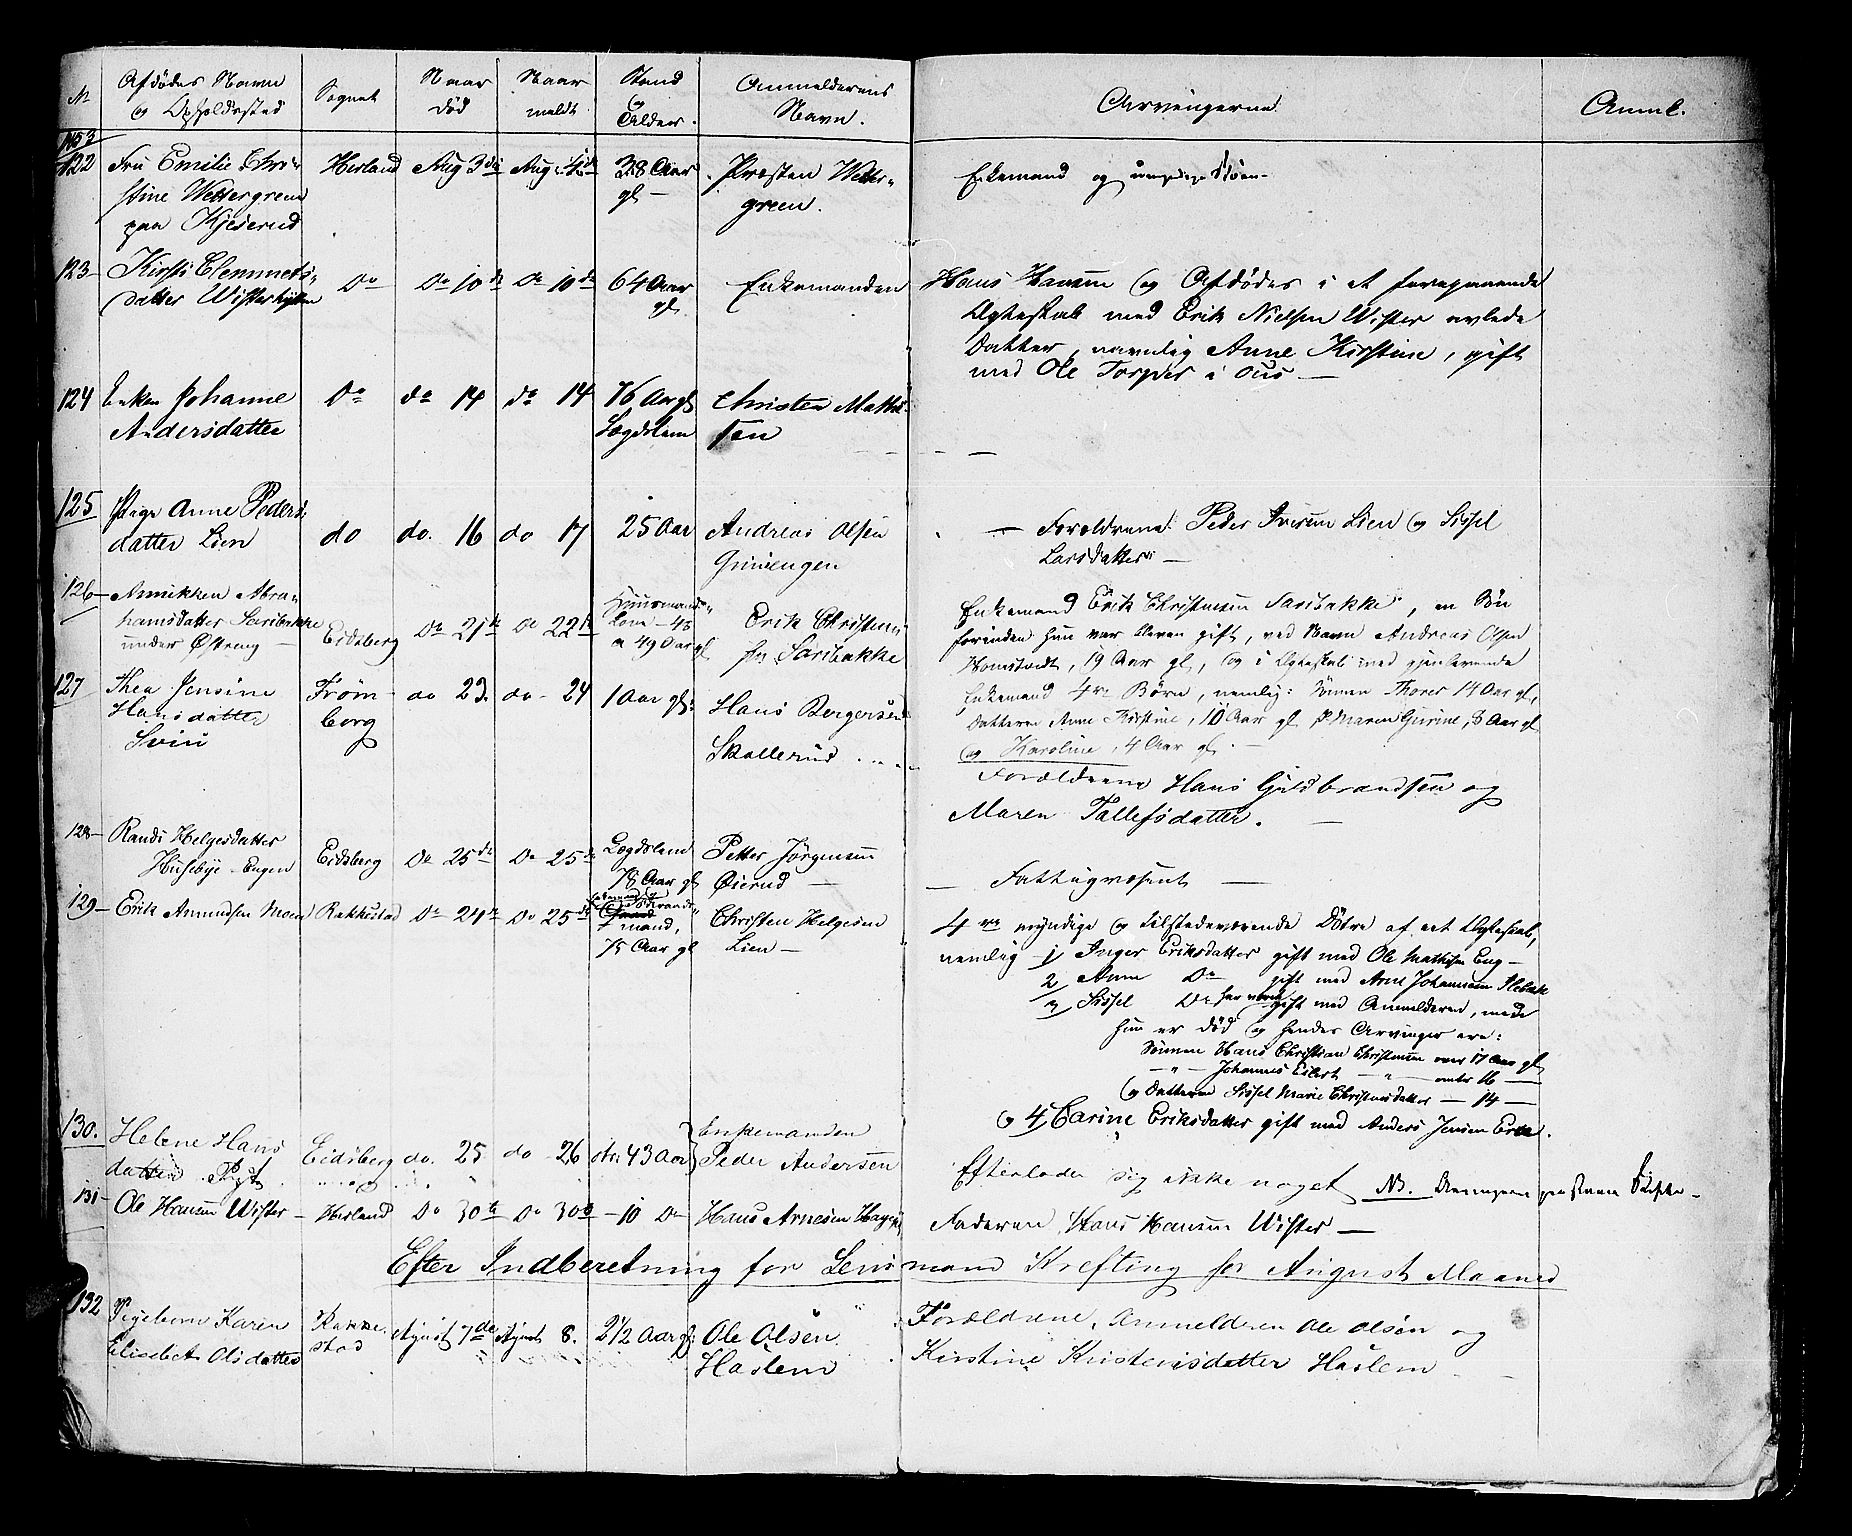 No Afdødes Navn og Opholdssted Sognet Naar død Naar meldt Stand og Alder. Anmelderens Navn. Arvingerne. Anml.
122 Fru Emilie Chri- Herland Aug 3de Aug 4de 38 Aar Præsten Wetter- Enkemand og
stine Wettergreen gl – green.
paa Kjeserud
123– Kirsti Clemmets- Do Do 10de Do 10de 64 Aar Enkemanden Hans Hansen og Afdødes i et foregaaende
datter Wister gl. Ægteskab med Erik Nielsen Wister avlede
Datter, navnlig Anne Kirstine, gift
med Ole Torper i Ous –
124 Enken Johanne Do do 14 do 14 76 Aar gl Christen Mathi-
Andersdatter Lægdslem sen
125 Pige Anne Peders- do do. 16 do 17 25 Aar Andreas Olsen – Forældrene: Peder Iversen Lien og Sissel
datter Lien Grinengen Larsdatter –
126– Annikken Abra- Huusmands- Enkemand Erik Christensen Saribakke, en Søn
hamsdatter Saribakke Eidsberg Do 21de Do 22de Kone – 48 Erik Christen- forinden hun var bleven gift, ved Navn Andreas Olsen
under Østreng – a 49 Aar gl sen Saribakke 19 Aar gl, og i Ægteskab med gjenlevende
127 Thea Jensine Frøm- do 23. do – 24 1 Aar gl: Hans Borgersen Enkemand 4re Børn, nemlig: Sønnen Thorer 14 Aar gl,
Hansdatter borg Skallerud Datteren Anne Kirstine, 10 Aar gl, Maren Gurine, 8 Aar gl
Sviu og Karoline, 4 Aar gl. –
Forældrene Hans Guldbrandsen og
Maren Tallefsdatter. –
128– Randi Helgesdatter Eidsberg Do 25de Do 25de Lægdslem Petter Jørgensen
Husebye-Engen 78 Aar gl Øierud – – Fattigvæsenet –
129– Erik Amundsen Moen Rakkestad Do 24de Do 25de mand, Christen Helgesen 4re myndige og tilstedeværende Døtre af eet Ægteskab,
75 Aar gl Lien – nemlig 1/ Inger Eriksdatter gift med Ole Mathisen Eng –
2/ Anne Do gift med Arne Johannesen
3/ Sissel Do har været gift med Anmelderen, men
hun er død og hendes Arvinger ere:
Sønnen Hans Christian Christensen over 17 Aar gl
– " – Johannes Eilert – " – over 16 –
og Datteren Sissel Marie Christensdatter – 14 –
og 4/ Carine Eriksdatter gift med Anders Jensen
130. Helene Hans Eidsberg do. 25 do 26 43 Aar Enkemanden
datter Peder Andersen Efterlader sig ikke noget NB.
131– Ole Hansen Wister – Herland Do 30te Do 30te – 10 Do Hans Arnesen Faderen Hans Hansen Wister –
Efter Indberetning for Lensmand Krefting for August Maaned
132 Pigebarn Karen Rakke- August 7de August 8. 2 1/2 Aar gl: Ole Olsen Forældrene, Anmelderen Ole Olsen og
Elisabet Olsdatter stad Haslem Kirstine Kristensdatter Haslem